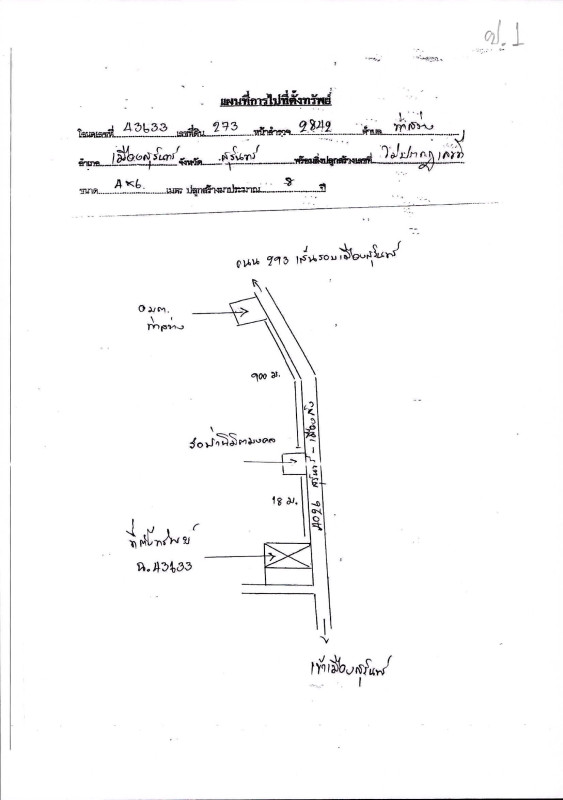 ป.1
แผนที่การไปที่ตั้งทรัพย์
โฉนดเลขที่ 43633 เลขที่ดิน 273 หน้าสำรวจ 2842 ตำบล ท่าสว่าง
อำเภอ เมืองสุรินทร์ จังหวัด สุรินทร์ พร้อมสิ่งปลูกสร้างเลขที่ ไม่ปรากฏเลขที่
ขนาด 4x6 เมตร ปลูกสร้างมาประมาณ 8 ปี
ถนน 293 เส้นรอบเมืองสุรินทร์
อบต.
ท่าสว่าง
900 ม.
18 ม.
4026 สุรินทร์ - เมืองลีง
ที่ตั้งทรัพย์
ฉ.43633
เข้าเมืองสุรินทร์